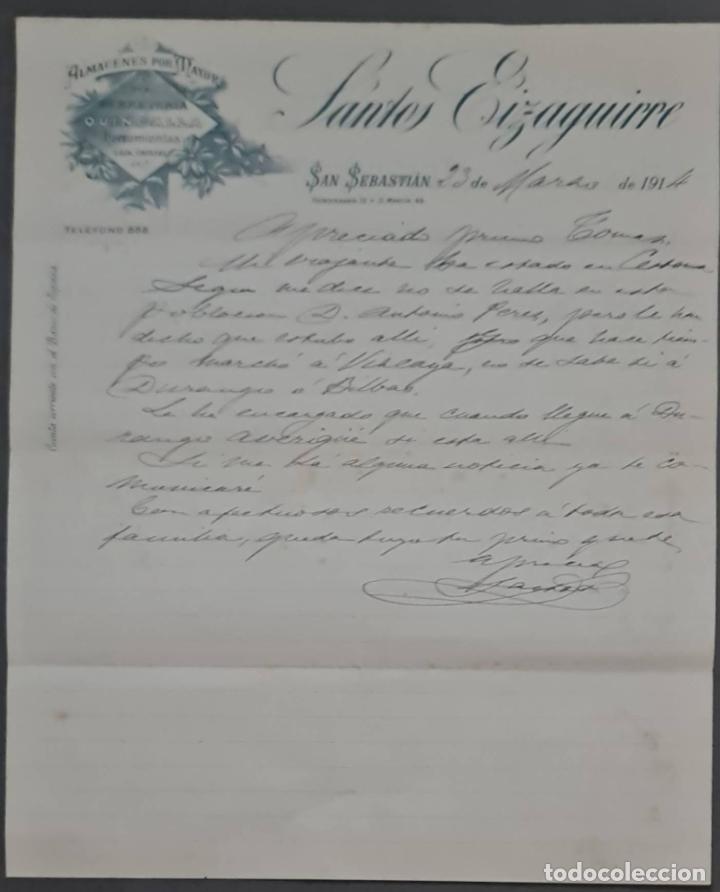 ALMACENES POR MAYOR
DE
FERRETERIA
QUINCALLA
Herramientas
Santos Eizaguirre
SAN SEBASTIÁN 23 de Marzo de 1914
TELÉFONO 558
Cuenta corriente con el Banco de España
Apreciado primo Tomas,
Mi viajante ha estado en Cestona
Segun me dice no se halla en esta
poblacion D. Antonio Peres, pero le han
dicho que estubo alli, que hace tiem-
po marchó á Viscaya, no se sabe si á
Durango ó Bilbao.
Le he encargado que cuando llegue á Du-
rango averigüe si esta alli
Si me dá alguna noticia ya te co-
municaré
Con afectuosos recuerdos á toda esa
familia, queda tuyo tu primo que te
aprecia
Santos
todocoleccion.net